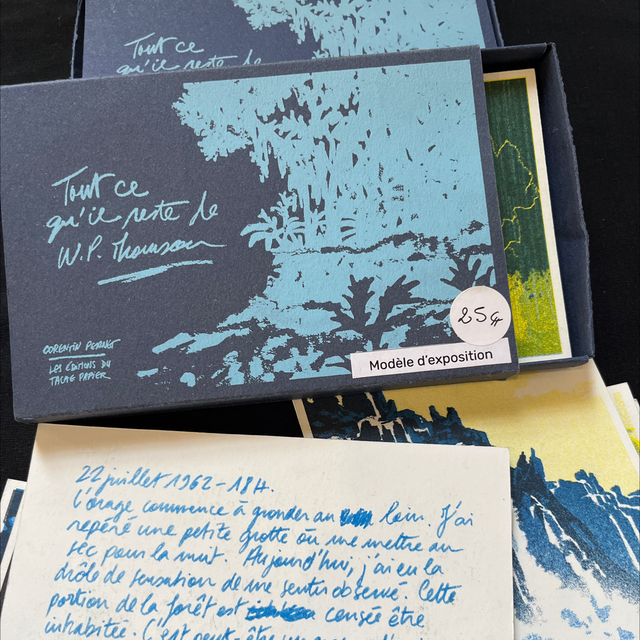 Tout ce
qu'il reste de
Tout ce
qu'il reste de
W.P. Thomson
CORENTIN PERNET
LES ÉDITIONS DU
TACAG PAPIER
25
Modèle d'exposition
22 juillet 1962 - 18H.
L'orage commence à gronder au loin. J'ai
repéré une petite grotte où me mettre au
sec pour la nuit. Aujourd'hui, j'ai eu la
drôle de sensation de me sentir observé. Cette
portion de la forêt est censée être
inhabitée. C'est peut-être